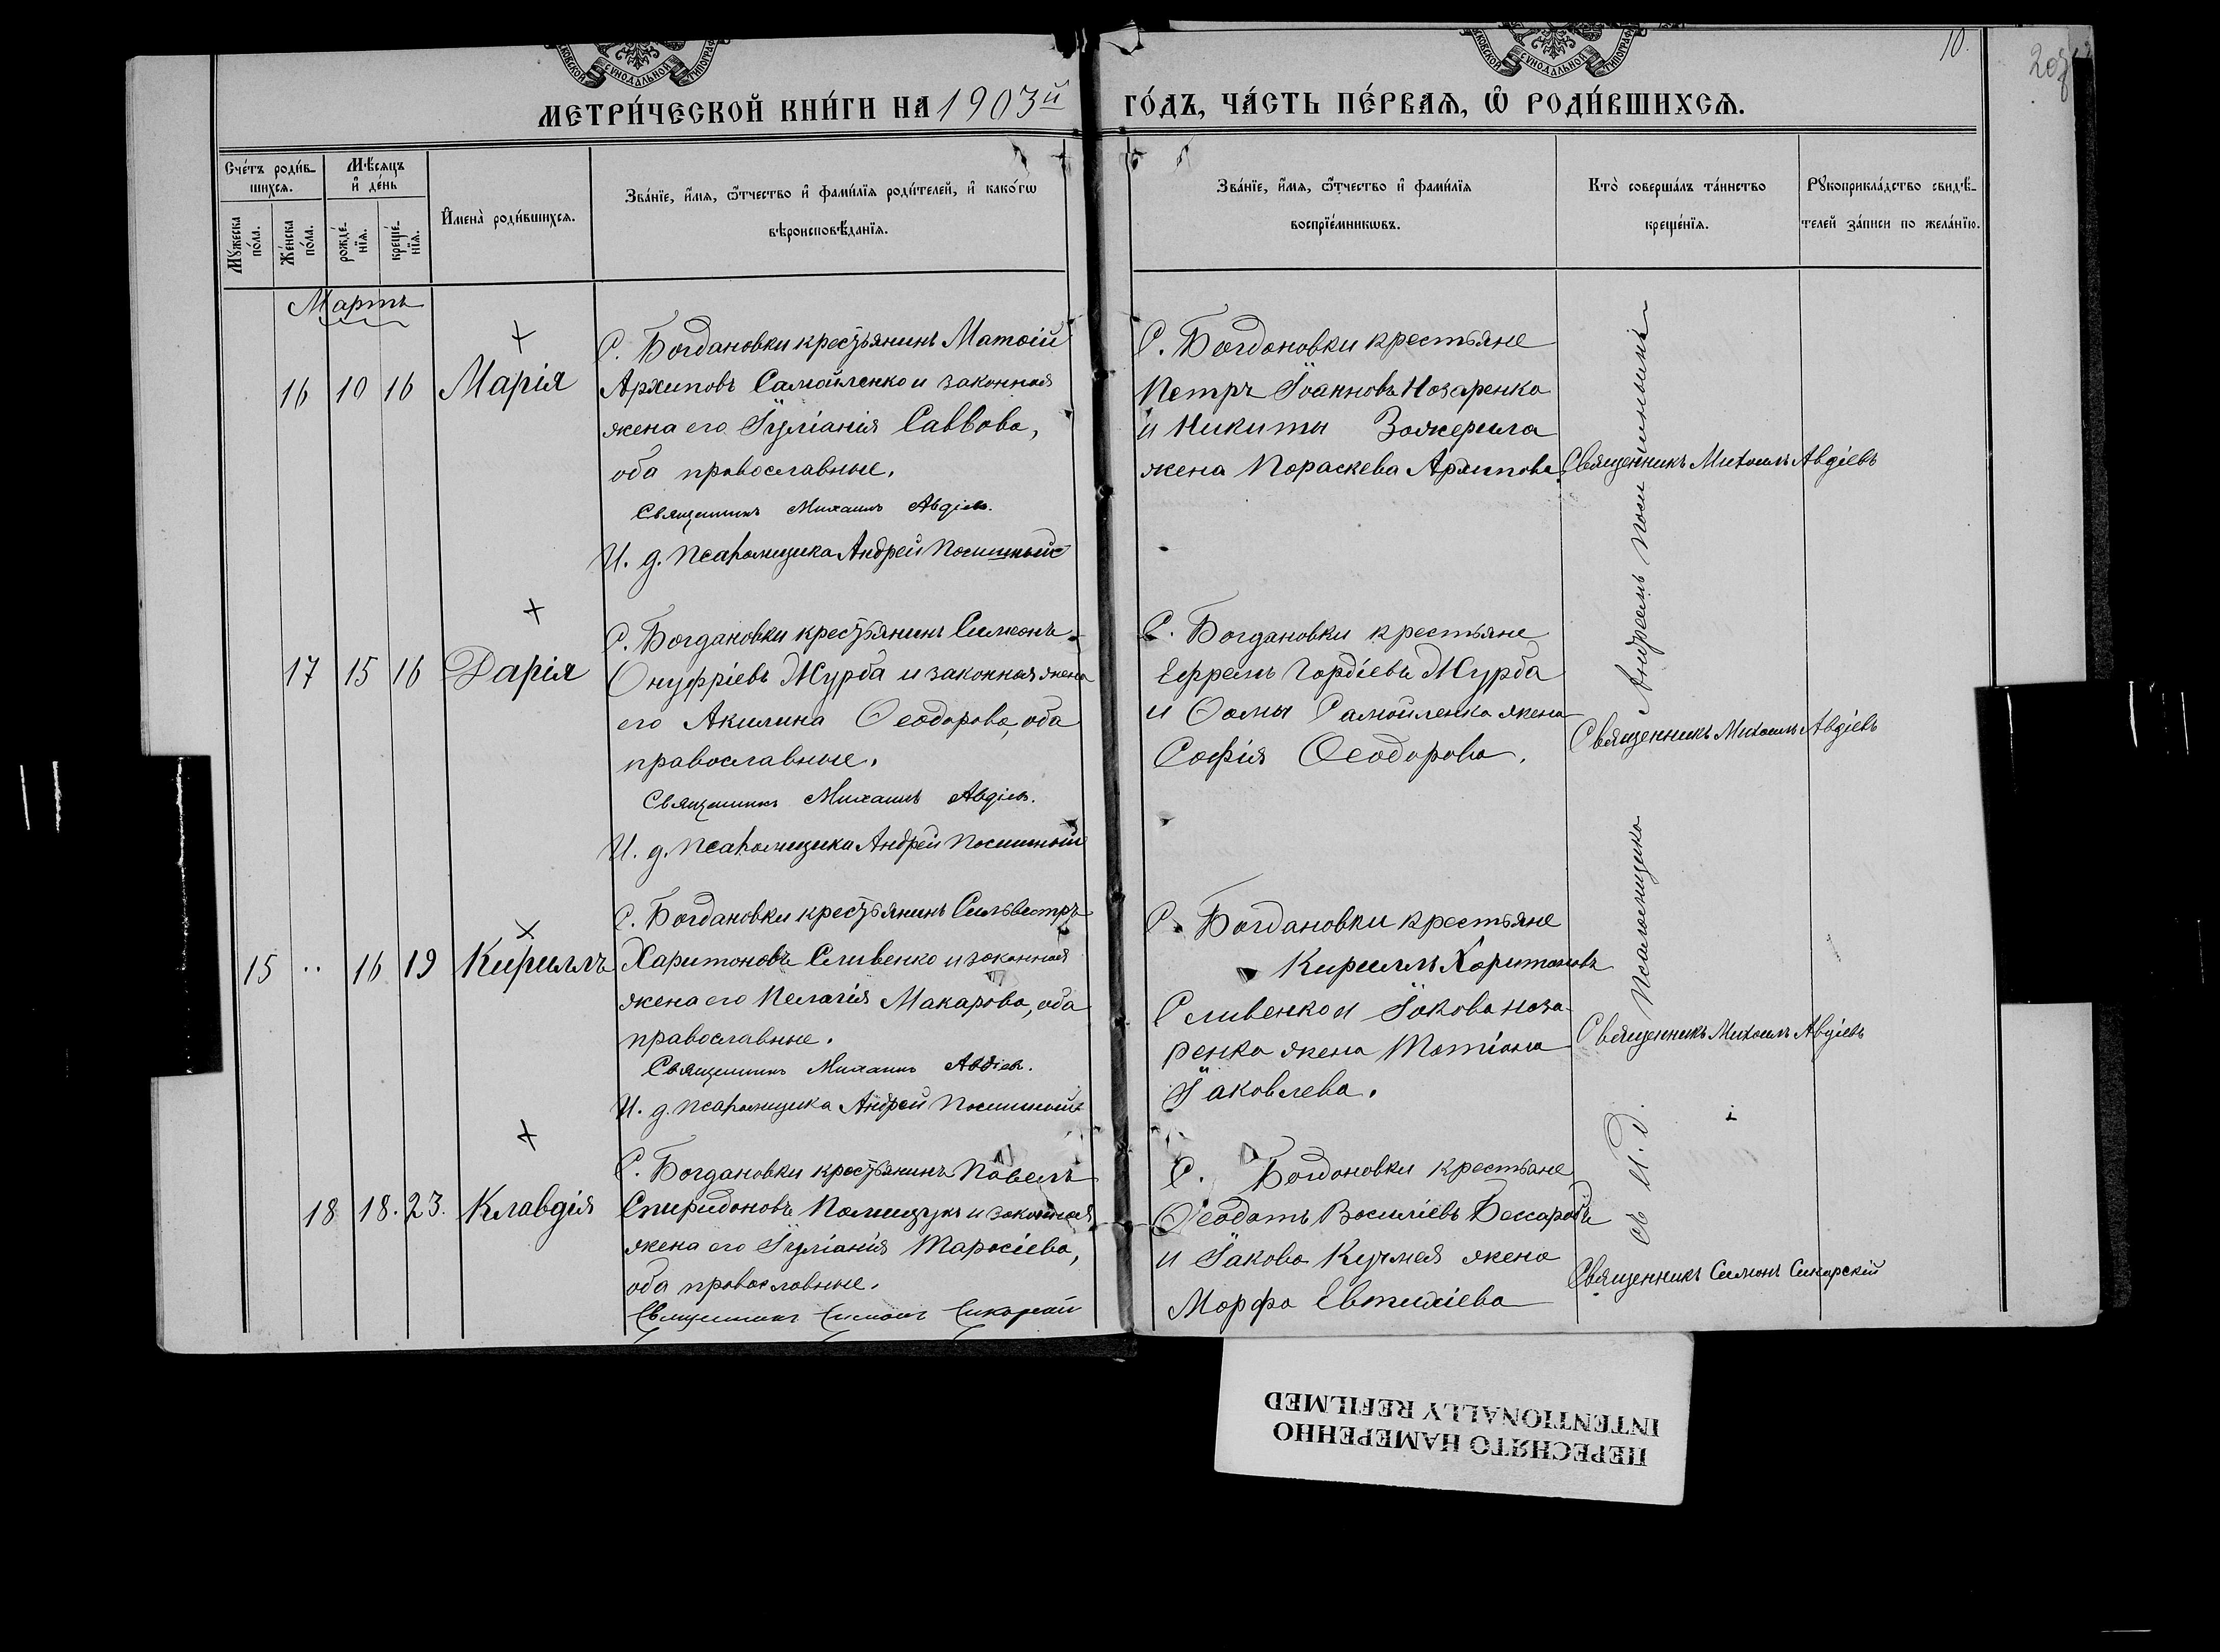 МЕТРИ́ЧЕСКОЙ КНИ́ГИ НА 1903й ГО́ДЪ, ЧА́СТЬ ПЕ́РВАѦ, Ѽ РОДИ́ВШИХСѦ.
10.
Сче́тъ роди́в-
шихсѧ.
Мѣ́сѧцъ
и҆ де́нь
Мꙋ́жеска
по́ла.
Же́нска
по́ла.
рожде́-
нїѧ.
креще́-
нїѧ.
И҆мена̀ роди́вшихсѧ.
Зва́нїе, и҆́мѧ, ѻ҆́тчество и҆ фами́лїѧ роди́телей, и҆ како́гѡ
вѣроисповѣ́данїѧ.
Зва́нїе, и҆́мѧ, ѻ҆́тчество и҆ фами́лїѧ
воспрїе́мникѡвъ.
Кто̀ соверша́лъ та́инство
креще́нїѧ.
Рꙋкоприкла́дство свидѣ́-
телей за́писи по жела́нїю.
Мартъ
16 10 16 Марія
С. Богдановки крестьянинъ Матѳій
Архиповъ Самойленко и законная
жена его Іуліанія Саввова,
оба православные.
Священникъ Михаилъ Авдіевъ.
И. д. псаломщика Андрей Посишный
С. Богдановки крестьяне
Петръ Іоанновъ Назаренко
и Никиты
жена Параскева Архипова
Священникъ Михаилъ Авдіевъ
17 15 16 Дарія
С. Богдановки крестьянинъ Симеонъ
Онуфріевъ Журба и законная жена
его Акилина Ѳеодорова, оба
православные.
Священникъ Михаилъ Авдіевъ.
И. д. псаломщика Андрей Посишный
С. Богдановки крестьяне
Ефремъ Гордіевъ Журба
и Ѳомы Самойленка жена
Софія Ѳеодорова.
Священникъ Михаилъ Авдіевъ
15 .. 16 19 Кириллъ
С. Богдановки крестьянинъ Сильвестръ
Харитоновъ Сливенко и законная
жена его Пелагія Макарова, оба
православные.
Священникъ Михаилъ Авдіевъ.
И. д. псаломщика Андрей Посишный
С. Богдановки крестьяне
Кириллъ Харитоновъ
Сливенко и Іакова Наза-
ренка жена Татіана
Іаковлева.
Священникъ Михаилъ Авдіевъ
18 18. 23. Клавдія
С. Богдановки крестьянинъ Павелъ
Спиридоновъ Полищукъ и законная
жена его Іуліанія Тарасіева,
оба православные.
Священникъ Симонъ Сикорскій
С. Богдановки крестьяне
Ѳеодотъ Василіевъ Бессарабъ
и Іакова Кучмея жена
Марфа Евтихіева
Священникъ Симонъ Сикорскій
съ И. д. Псаломщика Андреемъ
ПЕРЕСНЯТО НАМЕРЕННО
INTENTIONALLY REFILMED